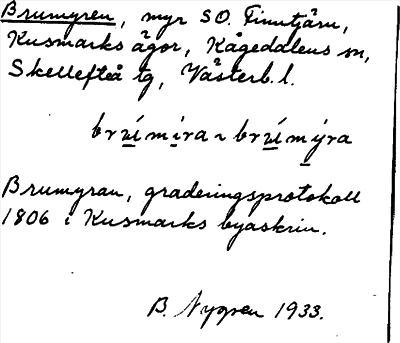 Brumyren, myr SO. Finntjärn,
Kusmarks ägor, Kågedalens sn,
Skellefteå tg, Västerb. l.
Brumyran, graderingsprotokoll
1806 i Kusmarks byaskrin.
B. Nygren 1933.